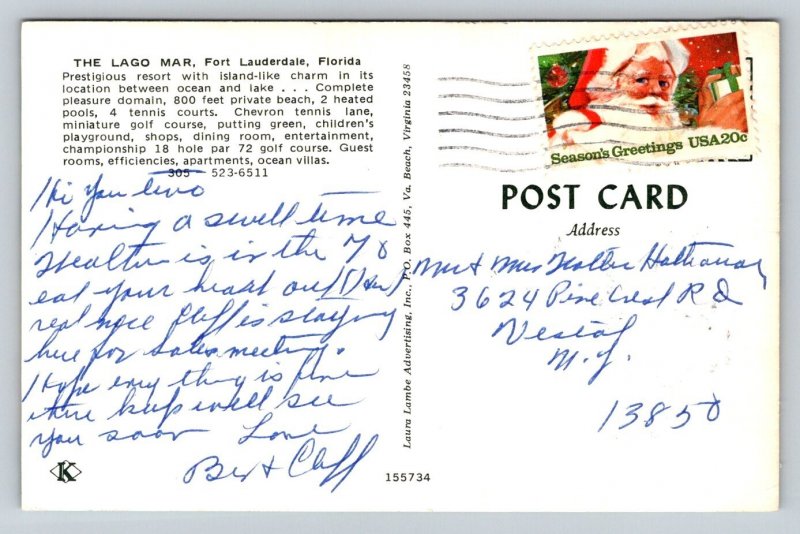 THE LAGO MAR, Fort Lauderdale, Florida
Prestigious resort with island-like charm in its
location between ocean and lake . . . Complete
pleasure domain, 800 feet private beach, 2 heated
pools, 4 tennis courts. Chevron tennis lane,
miniature golf course, putting green, children's
playground, shops, dining room, entertainment,
championship 18 hole par 72 golf course. Guest
rooms, efficiencies, apartments, ocean villas.
305 523-6511
Hi you two
Having a swell time
is in the 70
eat your heart out
real nice Cliff is staying
here for sales meeting.
Hope everything is fine
there keep well see
you soon Love
Be + Cliff
K
155734
Laura Lambe Advertising, Inc., P.O. Box 445, Va. Beach, Virginia 23458
Season's Greetings USA 20c
POST CARD
Address
Mr & Mrs Hathaway
3624 Pine Crest Rd
Vestal
N.Y.
13850